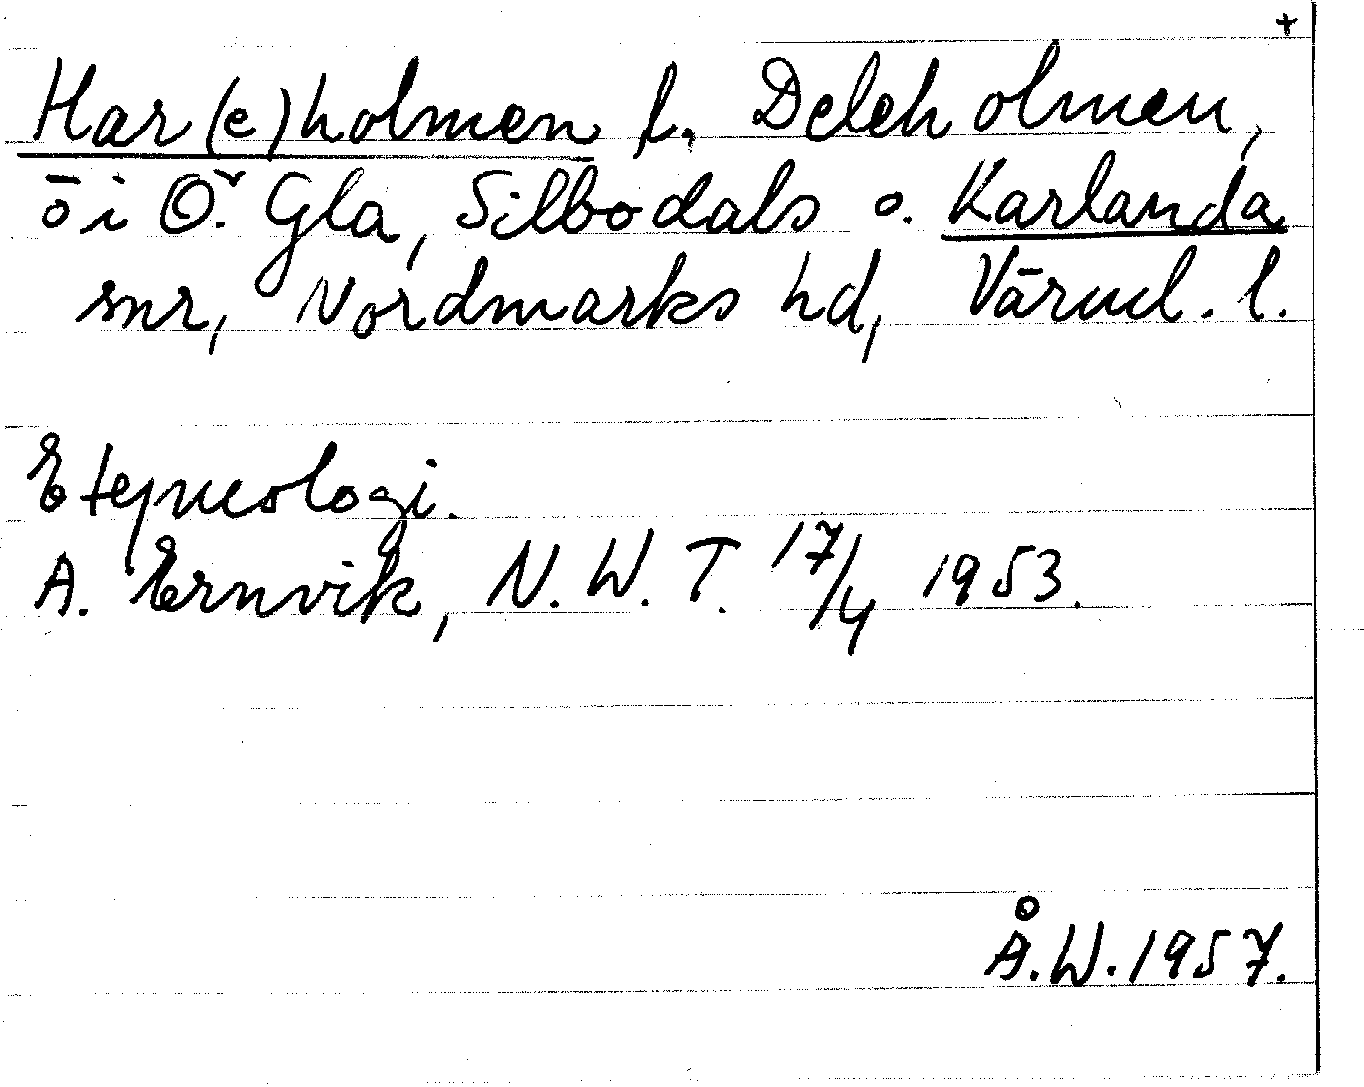 +
Har(e)holmen l. Deleholmen,
ö i Ö. Gla, Silbodals o. Karlanda
snr, Nordmarks hd, Värml. l.
Etymologi.
A. Ernvik, N. W. T. 17/4 1953.
Å.W. 1957.